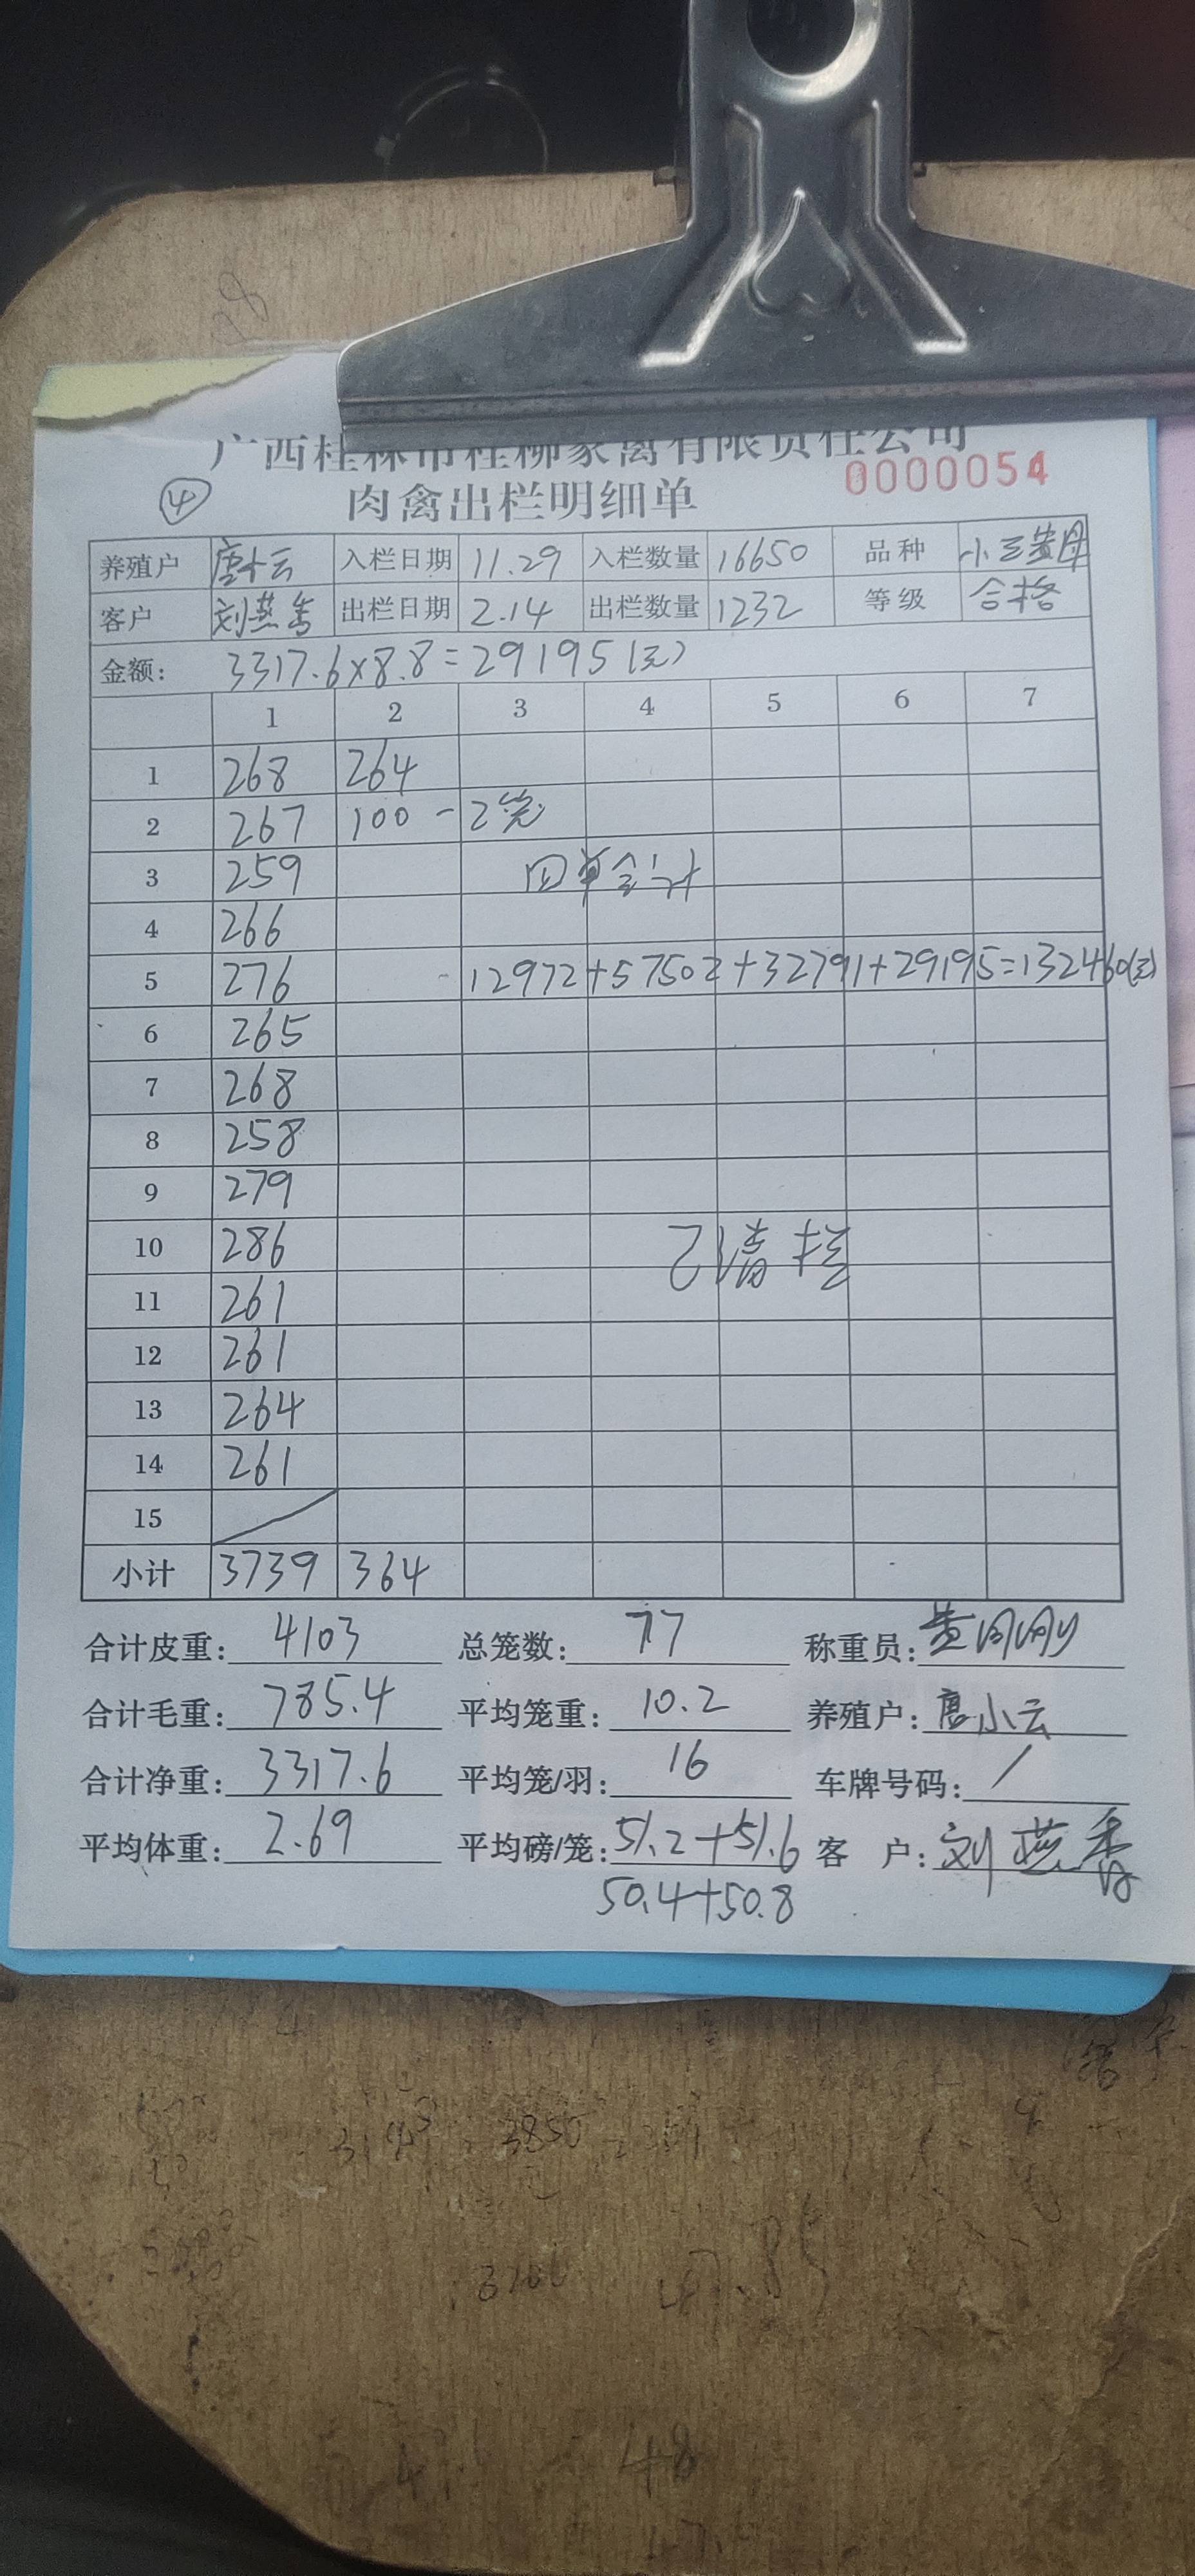 广西桂林市桂柳家禽有限责任公司
④ 肉禽出栏明细单 0000054
养殖户 唐小云 入栏日期 11.29 入栏数量 16650 品种 小三黄母
客户 刘燕香 出栏日期 2.14 出栏数量 1232 等级 合格
金额: 3317.6×8.8=29195(元)
1 2 3 4 5 6 7
1 268 264
2 267 100 - 2笼
3 259 四单合计
4 266
5 276 12972+57502+32791+29195=132460(元)
6 265
7 268
8 258
9 279
10 286 已清栏
11 261
12 261
13 264
14 261
15
小计 3739 364
合计皮重: 4103 总笼数: 77 称重员: 黄
合计毛重: 785.4 平均笼重: 10.2 养殖户: 唐小云
合计净重: 3317.6 平均笼/羽: 16 车牌号码: /
平均体重: 2.69 平均磅/笼: 51.2+51.6 客 户: 刘燕香
50.4+50.8